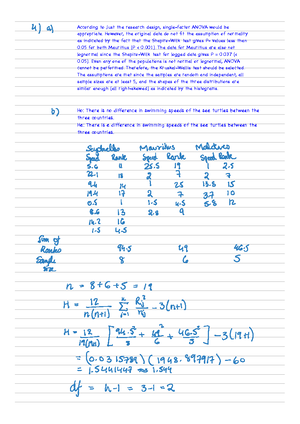 4) a) According to just the research design, single-factor ANOVA would be
appropriate. However, the original data do not fit the assumption of normality
as indicated by the fact that the Shapiro-Wilk test gives P-values less than
0.05 for both Mauritius (P < 0.001). The data for Mauritius are also not
lognormal since the Shapiro-Wilk test for logged data gives P = 0.037 (<
0.05). Even any one of the populations is not normal or lognormal, ANOVA
cannot be performed. Therefore, the Kruskal-Wallis test should be selected.
The assumptions are that since the samples are random and independent, all
sample sizes are at least 5, and the shapes of the three distributions are
similar enough (all right-skewed) as indicated by the histograms.
b) H₀: There is no difference in swimming speeds of the sea turtles between the
three countries.
Hₐ: There is a difference in swimming speeds of the sea turtles between the
three countries.
Seychelles Mauritius Maldives
Speed Rank Speed Rank Speed Rank
5.6 11 25.5 19 1 2.5
22.1 18 2 7 2 7
9.4 14 1 2.5 13.8 15
19.4 17 2 7 3.7 10
0.5 1 1.5 4.5 5.8 12
8.6 13 2.8 9
14.2 16
1.5 4.5
Sum of
Ranks 94.5 49 46.5
Sample
size 8 6 5
n = 8+6+5 = 19
H = 12/n(n+1) Σ Rj²/nj - 3(n+1)
H = 12/19(19+1) [94.5²/8 + 49²/6 + 46.5²/5] - 3(19+1)
= (0.0315789)(1948.897917) - 60
= 1.5441447 ≈ 1.544
df = k-1 = 3-1 = 2